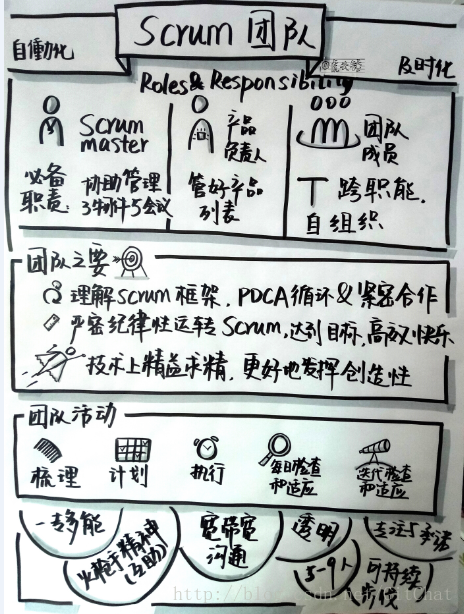 Scrum团队
自働化
及时化
Roles & Responsibility
Scrum master
必备职责:
协助管理
3物件与5会议
产品负责人
管好产品列表
团队成员
T 跨职能.
自组织
团队之要
理解Scrum框架, PDCA循环&紧密合作
严密纪律性运转Scrum, 达到目标, 高效快乐
技术上精益求精, 更好地发挥创造性
团队活动
梳理
计划
执行
每日检查和适应
迭代检查和适应
一专多能
火枪手精神(互助)
宽带宽沟通
透明
5-9人
专注与承诺
可持续
http://blog.csdn.net/GitChat